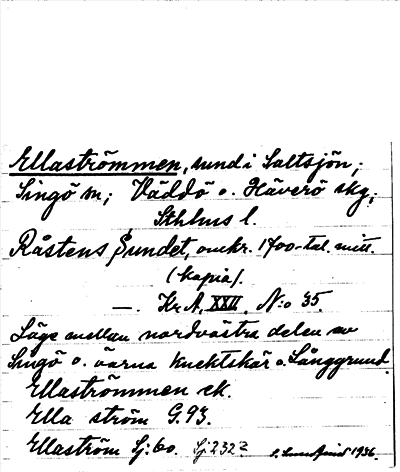 Ellaströmmen, sund i Saltsjön;
Singö sn; Väddö o. Häverö skg;
Sthlms l.
Råstens Sundet, omkr. 1700-tal. mitt.
(kopia).
—. Kr. A. XXII. N:o 35.
Läge mellan nordvästra delen av
Singö o. öarna Knektskär o. Långgrund.
Ellaströmmen ek.
Ella ström G.93.
Ellaström Sj:60. Sj:232
1936.